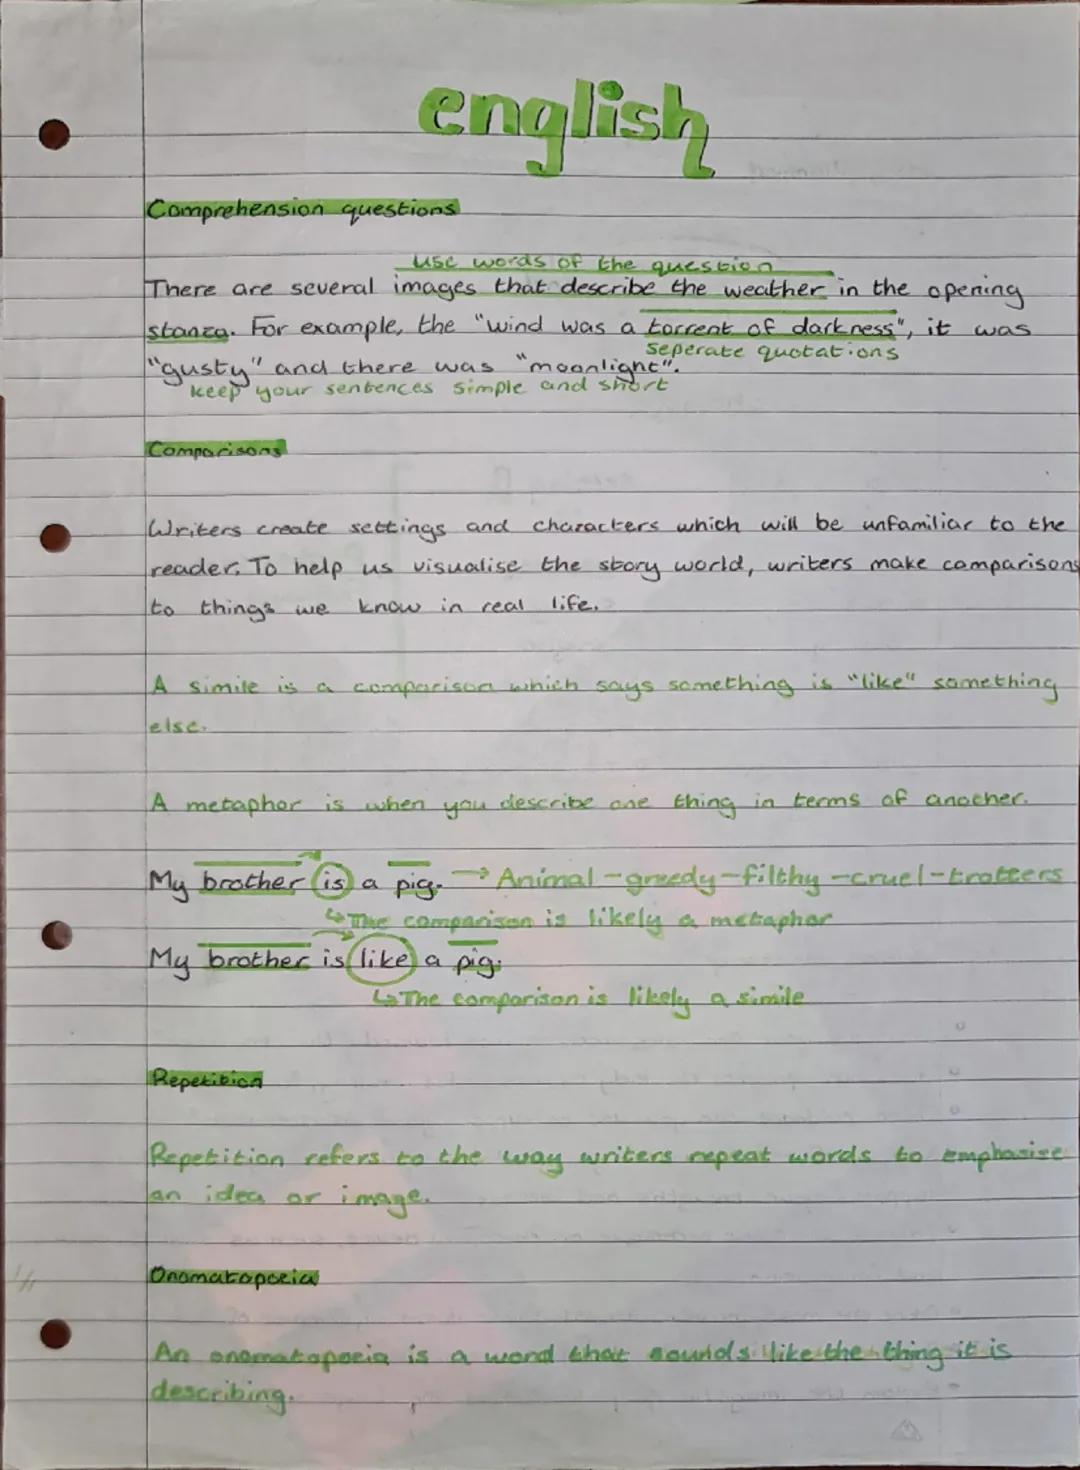 english
Comprehension questions
use words of the question
There are several images that describe the weather in the opening
stanza. For example, the "wind was a torrent of darkness", it was
seperate quotations
"gusty" and there was "moonlight".
keep your sentences simple and short
Comparisons
Writers create settings and characters which will be unfamiliar to the
reader. To help us visualise the story world, writers make comparisons
to things we know in real life.
A simile is a comparison which says something is "like" something
else.
A metaphor is when you describe one thing in terms of another.
My brother is a pig. → Animal - greedy - filthy - cruel - trotters
↳ The comparison is likely a metaphor
My brother is like a pig.
↳ The comparison is likely a simile
Repetition
Repetition refers to the way writers repeat words to emphasise
an idea or image.
Onomatopoeia
An onomatopoeia is a word that sounds like the thing it is
describing.